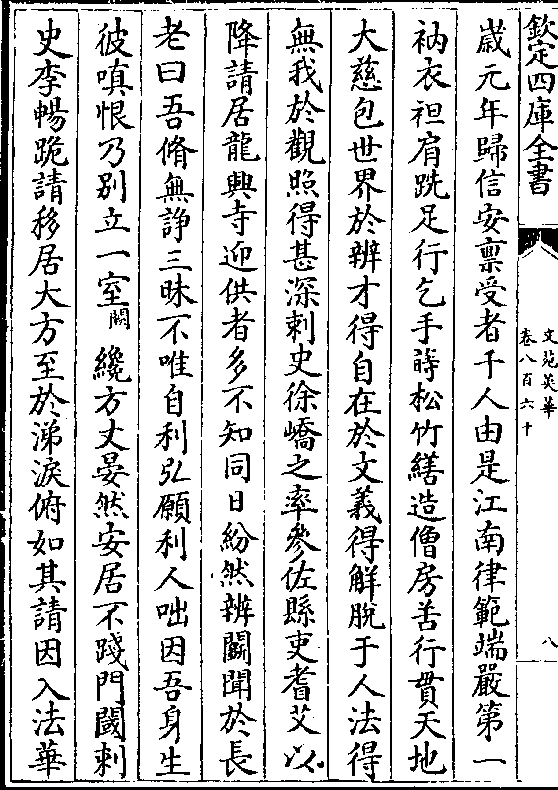 欽定四庫全書
文苑英華
卷八百六十
八
歲元年歸信安禀受者千人由是江南律範端嚴第一
衲衣袒肩跣足行乞手蒔松竹繕造僧房善行貫天地
大慈包世界於辨才得自在於文義得解脫于人法得
無我於觀照得甚深刺史徐嶠之率參佐縣吏耆艾以
降請居龍興寺迎供者多不知同日紛然辨鬭聞於長
老曰吾脩無諍三昧不唯自利弘願利人咄因吾身生
彼嗔恨乃別立一室闕纔方丈晏然安居不踐門閾刺
史李暢跪請移居大方至於涕淚俯如其請因入法華